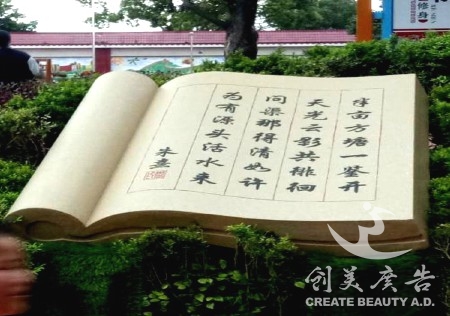 半亩方塘一鉴开
天光云影共徘徊
问渠那得清如许
为有源头活水来
朱熹
修身
创美廣告
CREATE BEAUTY A.D.